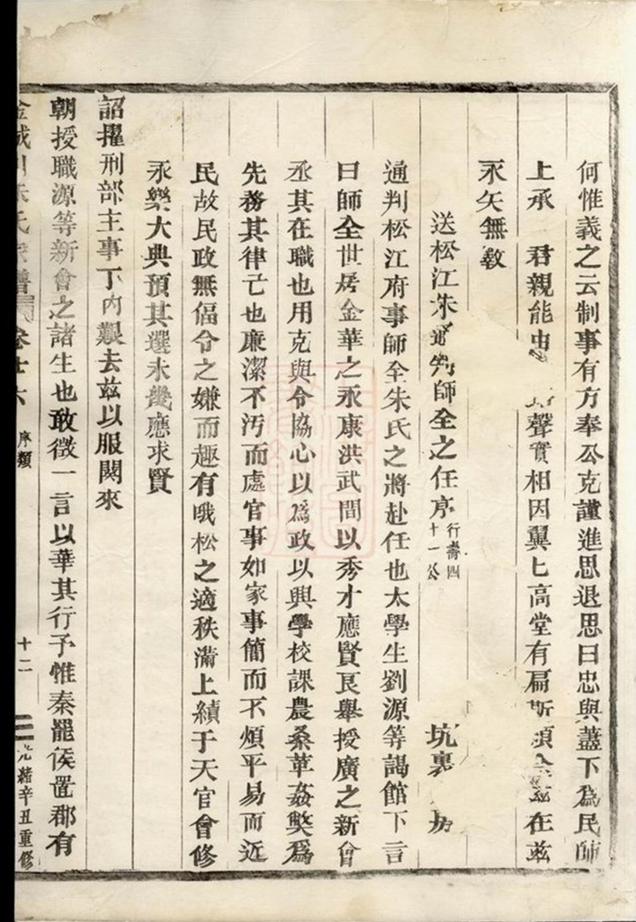 何惟義之云制事有方奉公克謹進思退思曰忠與藎下為民師
上承　君親能忠　聲實相因翼匕高堂有扁斯　在茲
永矢無斁
送松江朱　師全之任序行壽四十一公　坑裏　房
通判松江府事師全朱氏之將赴任也太學生劉源等謁館下言
曰師全世居金華之永康洪武間以秀才應賢良舉授廣之新會
丞其在職也用克與令協心以為政以興學校課農桑革姦獘為
先務其律亡也廉潔不汚而處官事如家事簡而不煩平易而近
民故民政無偪令之嫌而趣有哦松之適秩滿上績于天官會修
永樂大典預其選未幾應求賢
詔擢刑部主事丁內艱去茲以服闋來
朝授職源等新會之諸生也敢徵一言以華其行予惟秦罷侯置郡有
氏　譜　卷十六　序類　十二　光緒辛丑重修